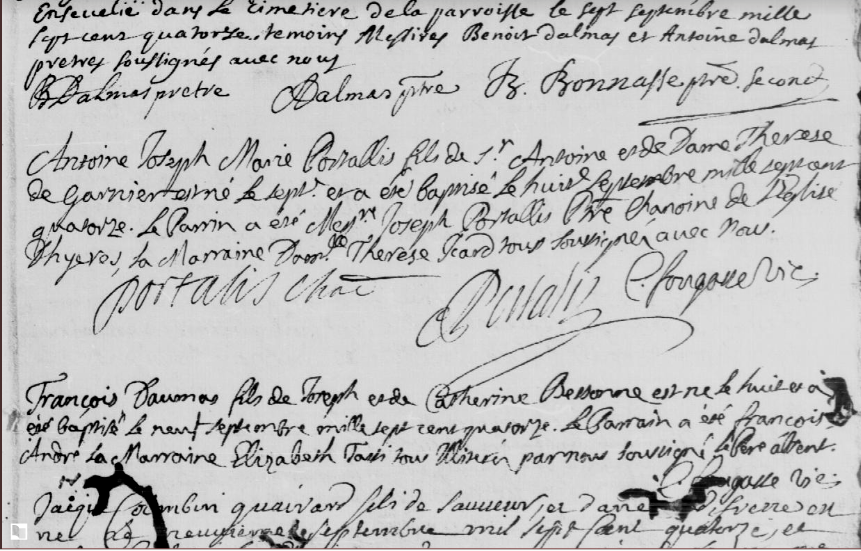 Ensevelie dans le cimetiere de la parroisse le sept septembre mille
sept cent quatorze. temoins Messires Benoit dalmas et Antoine dalmas
pretres soussignés avec nous
B Dalmas pretre Dalmas ptre B. Bonnasse ptre. second
Antoine Joseph Marie Portallis fils de Sr Antoine et de Dame Therese
de Garnier est né le sept. et a été baptisé le huit septembre mille sept cent
quatorze. Le Parrin a été Messre Joseph Portallis Ptre Chanoine de l'Eglise
Dhyeres, la Marraine Damlle Therese Icard tous soussignéz avec Nous.
portalis Chae Portalis C. fougasse Vic.
François Daumas fils de Joseph et de Catherine Bessonne est né le huit et a
été baptisé le neuf septembre mille sept cent quatorze. Le Parrain a été françois
André la Marraine Elizabeth tous par nous soussigné le Pere absent.
C. fougasse Vic.
quairard fils de sauveur, et dane
ne le neuvieme septembre mil sept cent quatorze, et